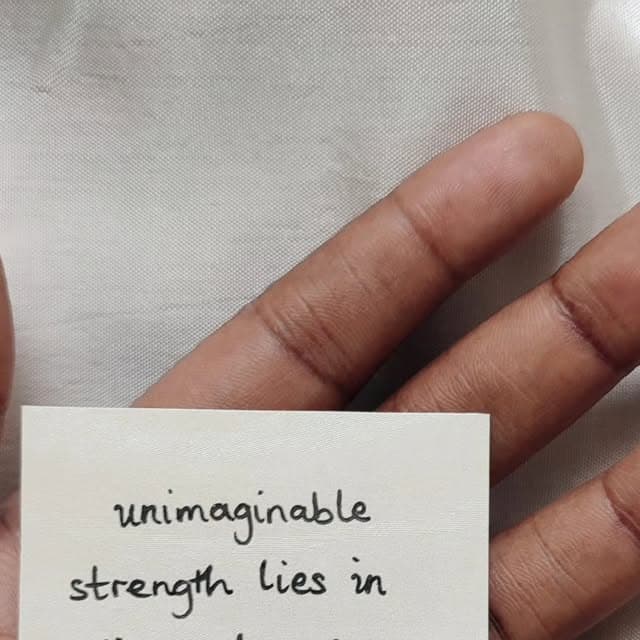 unimaginable
strength lies in